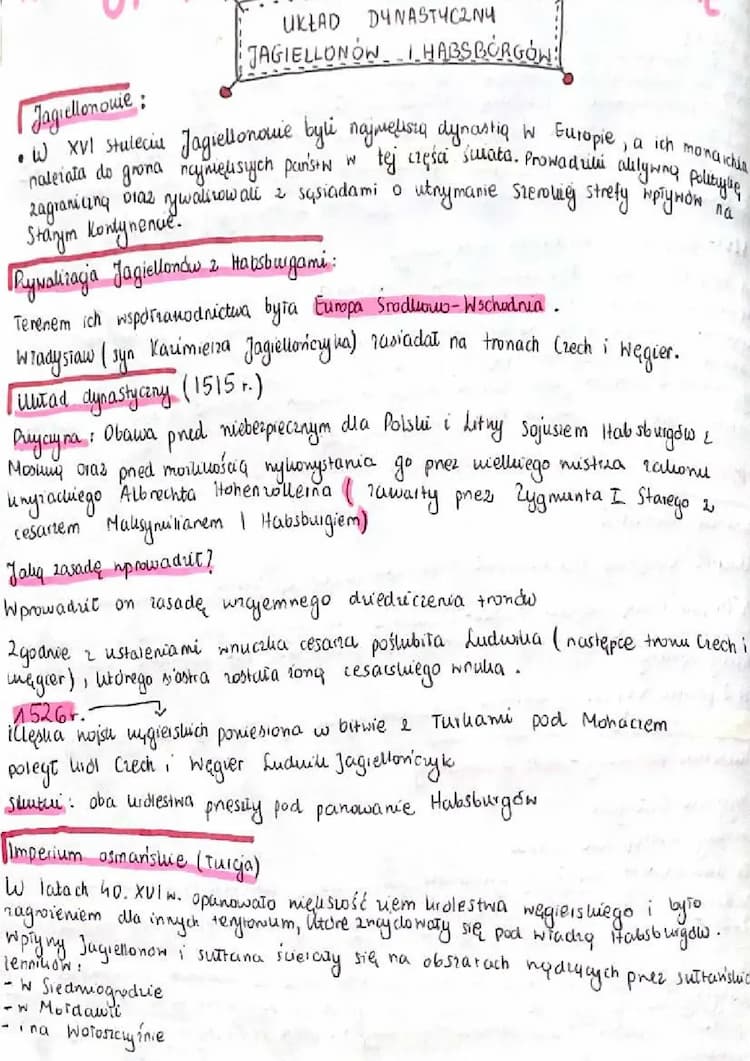 UKŁAD DYNASTYCZNY
JAGIELLONÓW I HABSBURGÓW:
Jagiellonowie:
• W XVI stuleciu Jagiellonowie byli największą dynastią w Europie, a ich monarchia
należała do grona największych państw w tej części świata. Prowadzili aktywną politykę
zagraniczną oraz rywalizowali z sąsiadami o utrzymanie szerokiej strefy wpływów na
Starym Kontynencie.
Rywalizacja Jagiellonów z Habsburgami:
Terenem ich współzawodnictwa była Europa Środkowo-Wschodnia.
Władysław (syn Kazimierza Jagiellończyka) zasiadał na tronach Czech i Węgier.
Układ dynastyczny (1515 r.)
Przyczyna: Obawa przed niebezpiecznym dla Polski i Litwy sojusiem Habsburgów z
Moskwą oraz przed możliwością wykorzystania go przez wielkiego mistrza zakonu
krzyżackiego Albrechta Hohenzollerna (zawarty przez Zygmunta I Starego z
cesarzem Maksymilianem I Habsburgiem)
Jaką zasadę wprowadził?
Wprowadził on zasadę wzajemnego dziedziczenia tronów
Zgodnie z ustaleniami wnuczka cesarza poślubiła Ludwika (następce tronu Czech i
Węgier), którego siostra została żoną cesarskiego wnuka.
1526r.
Klęska wojsk węgierskich poniesiona w bitwie z Turkami pod Mohaczem
poległ król Czech i Węgier Ludwik Jagiellończyk
Skutki: oba królestwa przeszły pod panowanie Habsburgów
Imperium osmańskie (Turcja)
W latach 40. XVI w. opanowało większość ziem królestwa węgierskiego i było
zagrożeniem dla innych terytorium, które znajdowały się pod władzą Habsburgów.
Wpływy Jagiellonów i sułtana ścierały się na obszarach rządzących przez sułtańskich
lenników:
- w Siedmiogrodzie
- w Mołdawii
- i na Wołoszczyźnie